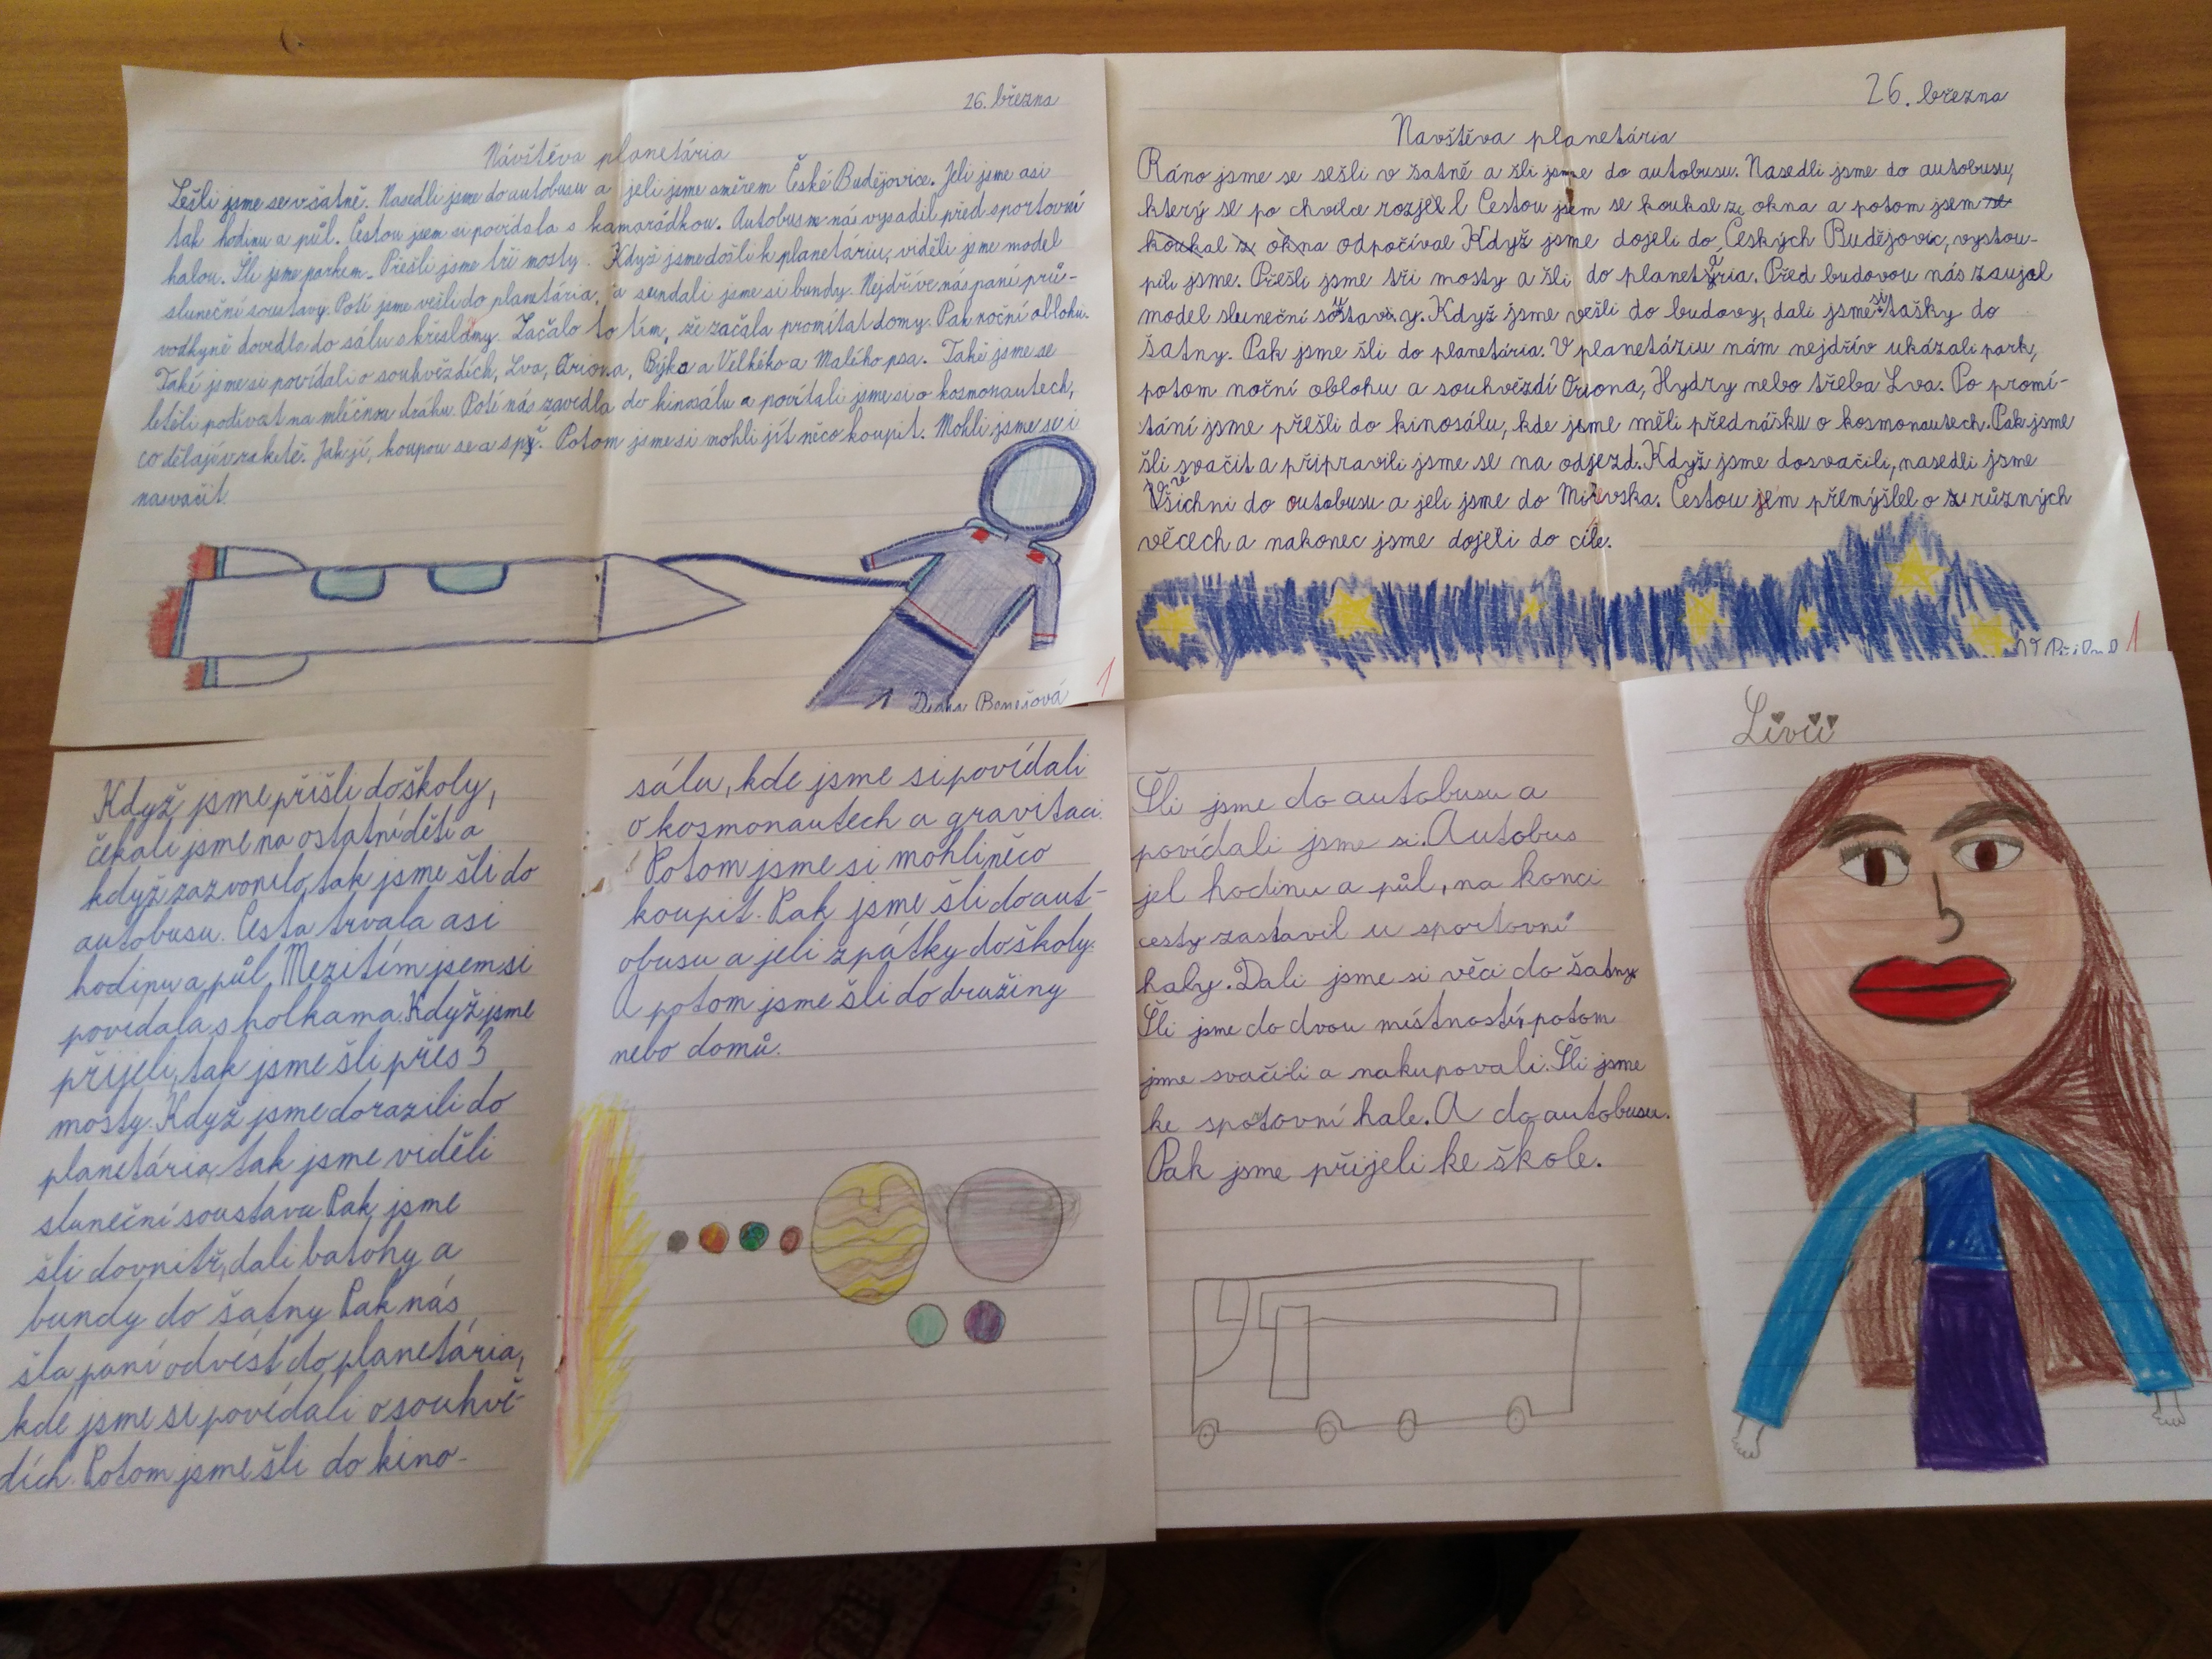 26. března
Návštěva planetária
Sešli jsme se v šatně. Nasedli jsme do autobusu a jeli jsme směrem České Budějovice. Jeli jsme asi
tak hodinu a půl. Cestou jsem si povídala s kamarádkou. Autobusm nás vysadil před sportovní
halou. Šli jsme parkem. Přešli jsme tři mosty. Když jsme došli k planetáriu, viděli jsme model
sluneční soustavy. Poté jsme vešli do planetária, a sundali jsme si bundy. Nejdříve nás paní prů-
vodkyně dovedla do sálu s křeslámy. Začalo to tím, že začala promítat domy. Pak noční oblohu.
Také jsme si povídali o souhvězdích, Lva, Oriona, Býka a Velkého a Malého psa. Také jsme se
letěli podívat na mléčnou dráhu. Poté nás zavedla do kinosálu a povítali jsme si o kosmonautech,
co dělají v raketě. Jak jí, koupou se a spí. Potom jsme si mohli jít něco koupit. Mohli jsme se i
nasvačit.
1 Benešová
1
26. března
Navštěva planetária
Ráno jsme se sešli v šatně a šli jsme do autobusu. Nasedli jsme do autobusu,
který se po chvilce rozjel l Cestou jsem se koukal ze okna a potom jsem se
koukal z okna odpočíval Když jsme dojeli do Českých Budějovic, vystou-
pili jsme. Přešli jsme tři mosty a šli do planetária. Před budovou nás zaujal
model sluneční soustavy. Když jsme vešli do budovy, dali jsme si tašky do
šatny. Pak jsme šli do planetária. V planetáriu nám nejdřív ukázali park,
potom noční oblohu a souhvězdí Oriona, Hydry nebo třeba Lva. Po promí-
tání jsme přešli do kinosálu, kde jsme měli přednášku o kosmonautech. Pak jsme
šli svačit a připravili jsme se na odjezd. Když jsme dosvačili, nasedli jsme
Všichni do autobusu a jeli jsme do Milevska. Cestou jem přemýšlel o různých
věcech a nakonec jsme dojeli do cíle.
1
Když jsme přišli do školy,
čekali jsme na ostatní děti a
když zazvonilo, tak jsme šli do
autobusu. Cesta trvala asi
hodinu a půl. Mezitím jsem si
povídala s holkama. Když jsme
přijeli, tak jsme šli přes 3
mosty. Když jsme dorazili do
planetária, tak jsme viděli
sluneční soustavu. Pak jsme
šli dovnitř, dali batohy a
bundy do šatny Pak nás
šla paní odvést do planetária,
kde jsme si povídali o souhvě-
dích. Potom jsme šli do kino-
sálu, kde jsme si povídali
o kosmonautech a gravitaci.
Potom jsme si mohli něco
koupit. Pak jsme šli do aut-
obusu a jeli zpátky do školy.
A potom jsme šli do družiny
nebo domů.
Šli jsme do autobusu a
povídali jsme si. Autobus
jel hodinu a půl, na konci
cesty zastavil u sportovní
haly. Dali jsme si věci do šatny
Šli jsme do dvou místností, potom
jsme svačili a nakupovali. Šli jsme
ke spotovní hale. A do autobusu.
Pak jsme přijeli ke škole.
Livii